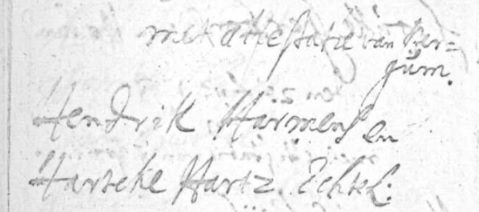 met attestatie van Ber=
gum.
Hendrik Harmens en
Harteke Hartz. Echtel: